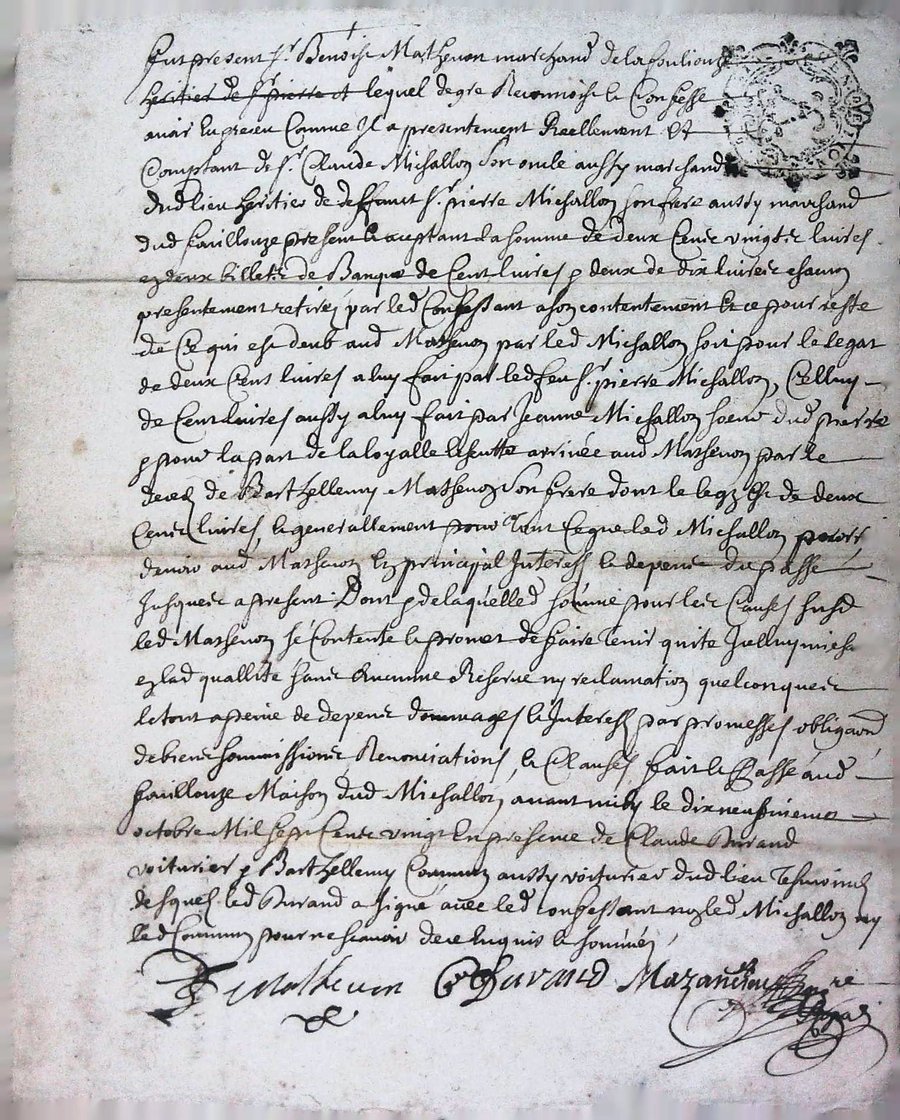 fut present Sr. Benoist Mathevon marchand de la fouliouse
heritier de Sr pierre et lequel de gre Reconnoist et Confesse
avoir heu receu Comme Il a presentement Reellement et
Comptant de Sr. Claude Michallon son oncle aussy marchand
dud lieu heritier de deffunct Sr. pierre Michallon son frere aussy marchand
dud fouillouze present et aceptant la somme de deux Cents vingts livres
en deux billets de Banque de Cent livres & deux de dix livres chacun
presentement retires par led Confessant a son contentement Et ce pour reste
de Ce qui est deub aud Mathevon par led Michallon soit pour le legat
de deux Cent livres a luy fait par led feu Sr. pierre Michallon, Celluy
de Cent livres aussy a luy fait par Jeanne Michallon soeur dud pierre
& pour la part de la loyalle escheutte arrivée aud Mathevon par le
deces de Barthellemy Mathevon son frere dont le legz Est de deux
Cents livres, et generallement pour tout Ce que led Michallon
devoir aud Mathevon En principal Interest et depens du passé
Jusques a present. Dont & de laquelle somme pour les Causes susd
led Mathevon se Contente et promet de faire tenir quite Icelluy
en lad quallite sans Aucunne Reserve ny reclamation quelconques
le tout a peine de depens dommages et Interest par promesses obligaon
de biens soumissions Renonciations, et Clauses fait et Passé aud
fouillouze Maison dud Michallon avant midy le dix neufviemes
octobre Mil sept Cents vingt En presence de Claude Durand
voiturier & Barthellemy Commun aussy voiturier dud lieu tesmoins
desquels led Durand a signé avec led confessant non led Michallon ny
led Commun pour ne scavoir de ce Enquis et sommés
B Mathevon C Durand Mazancieu